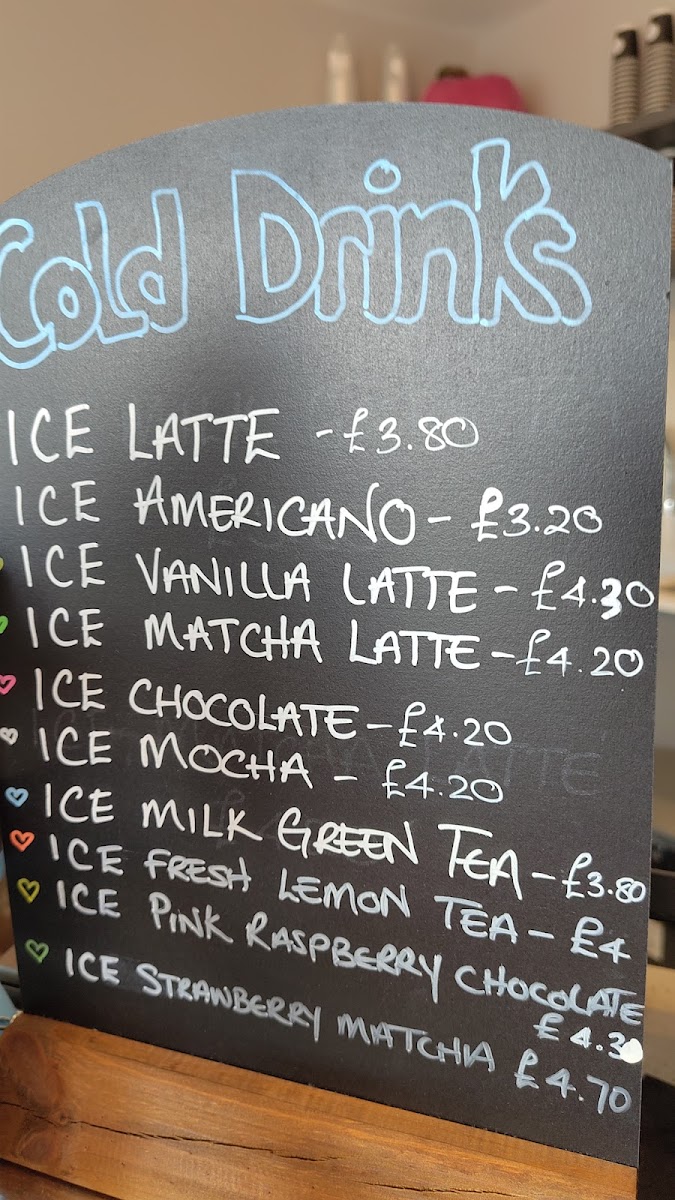 Cold Drinks
ICE LATTE - £3.80
ICE AMERICANO - £3.20
ICE VANILLA LATTE - £4.30
ICE MATCHA LATTE - £4.20
ICE CHOCOLATE - £4.20
ICE MOCHA - £4.20
ICE MILK GREEN TEA - £3.80
ICE FRESH LEMON TEA - £4
ICE PINK RASPBERRY CHOCOLATE
£4.30
ICE STRAWBERRY MATCHIA £4.70